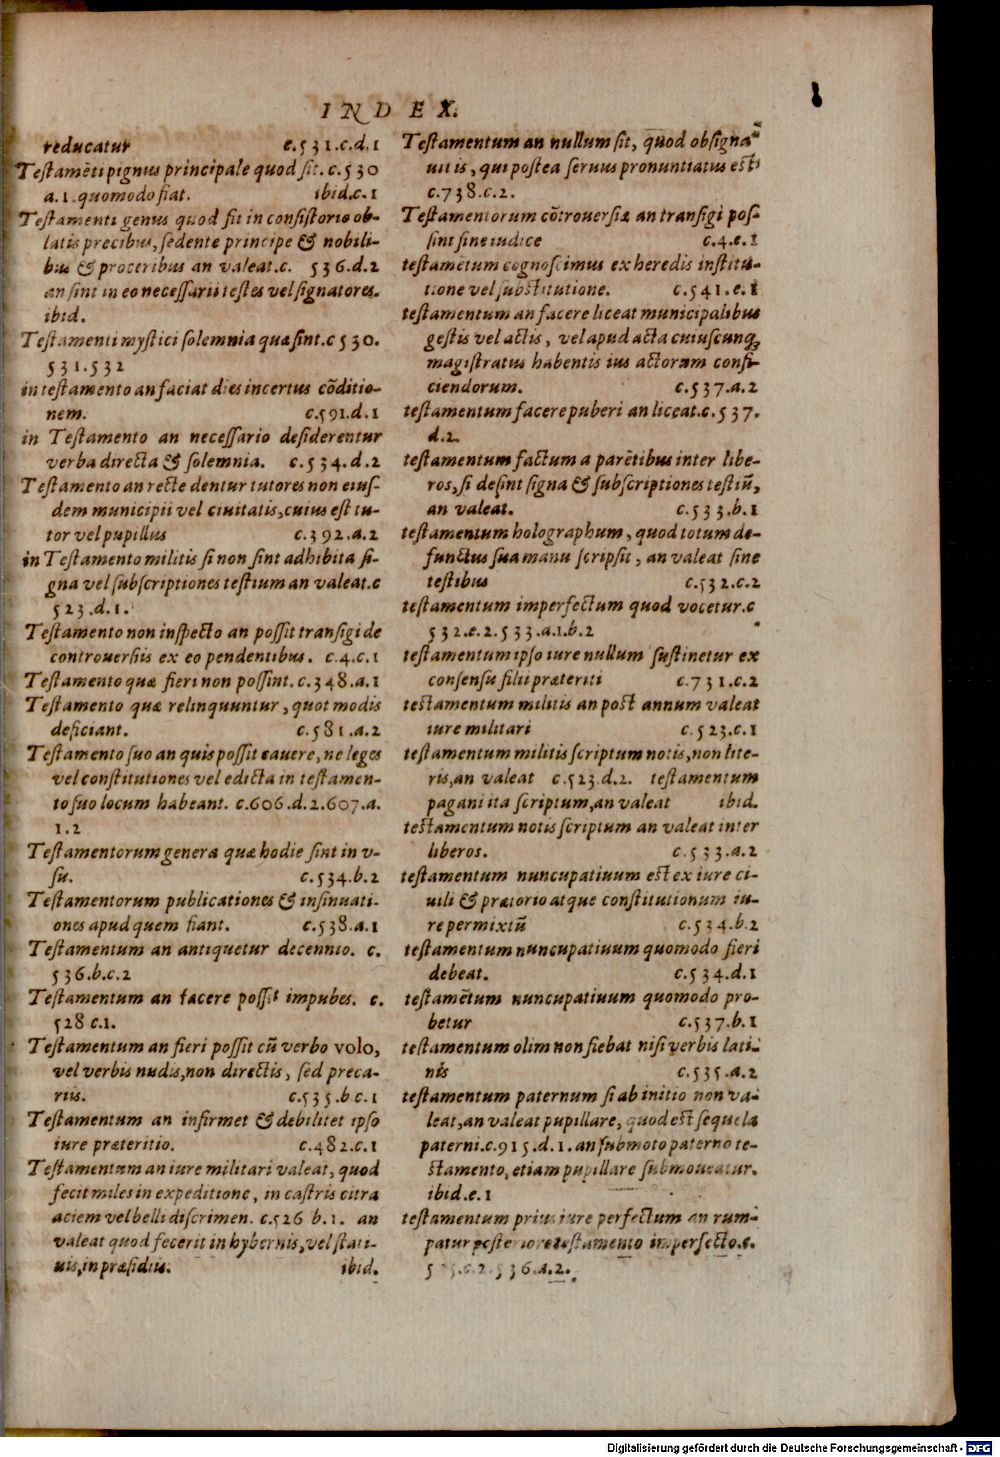 INDEX.
reducatur c.531.c.d.1
Testamēti pignus principale quod sit. c.530
a.1. quomodo fiat. ibid.c.1
Testamenti genus quod fit in consistorio ob-
latis precibus, sedente principe & nobili-
bus & proceribus an valeat.c. 536.d.2
an sint in eo necessarii testes vel signatores.
ibid.
Testamenti mystici solemnia quæ sint.c 530.
531.532
in testamento an faciat dies incertus cōditio-
nem. c.591.d.1
in Testamento an necessario desiderentur
verba directa & solemnia. c.534.d.2
Testamento an recte dentur tutores non eius-
dem municipii vel ciuitatis, cuius est tu-
tor vel pupillus c.392.a.2
in Testamento militis si non sint adhibita si-
gna vel subscriptiones testium an valeat.c
523.d.1.
Testamento non inspecto an possit transigi de
controuersiis ex eo pendentibus. c.4.c.1
Testamento quæ fieri non possint. c.348.a.1
Testamento quæ relinquuntur, quot modis
deficiant. c.581.a.2
Testamento suo an quis possit cauere, ne leges
vel constitutiones vel edicta in testamen-
to suo locum habeant. c.606.d.2.607.a.
1.2
Testamentorum genera quæ hodie sint in v-
su. c.534.b.2
Testamentorum publicationes & insinuati-
ones apud quem fiant. c.538.a.1
Testamentum an antiquetur decennio. c.
536.b.c.2
Testamentum an facere possit impubes. c.
528 c.1.
Testamentum an fieri possit cū verbo volo,
vel verbis nudis, non directis, sed preca-
riis. c.535.b c.1
Testamentum an infirmet & debilitet ipso
iure præteritio. c.482.c.1
Testamentum an iure militari valeat, quod
fecit miles in expeditione, in castris citra
aciem vel belli discrimen. c.526 b.1. an
valeat quod fecerit in hybernis, vel stati-
uis, in præsidiis. ibid.
Testamentum an nullum sit, quod obsigna-
uit is, qui postea seruus pronuntiatus est
c.738.c.2.
Testamentorum cōtrouersiæ an transigi pos-
sint sine iudice c.4.e.1
testamētum cognoscimus ex heredis institu-
tione vel substitutione. c.541.e.1
testamentum an facere liceat municipalibus
gestis vel actis, vel apud acta cuiuscunq;
magistratus habentis ius actorum confi-
ciendorum. c.537.a.2
testamentum facere puberi an liceat.c.537.
d.2.
testamentum factum a parētibus inter libe-
ros, si desint signa & subscriptiones testiū,
an valeat. c.533.b.1
testamentum holographum, quod totum de-
functus sua manu scripsit, an valeat sine
testibus c.532.c.2
testamentum imperfectum quod vocetur.c
532.e.2.533.a.1.b.2
testamentum ipso iure nullum sustinetur ex
consensu filii præteriti c.731.c.2
testamentum militis an post annum valeat
iure militari c.523.c.1
testamentum militis scriptum notis, non lite-
ris, an valeat c.523.d.2. testamentum
pagani ita scriptum, an valeat ibid.
testamentum notis scriptum an valeat inter
liberos. c.533.a.2
testamentum nuncupatiuum est ex iure ci-
uili & prætorio atque constitutionum iu-
re permixtū c.534.b.2
testamentum nuncupatiuum quomodo fieri
debeat. c.534.d.1
testamētum nuncupatiuum quomodo pro-
betur c.537.b.1
testamentum olim non fiebat nisi verbis lati-
nis c.535.a.2
testamentum paternum si ab initio non va-
leat, an valeat pupillare, quod est sequela
paterni.c.915.d.1. an submoto paterno te-
stamento, etiam pupillare submoueatur.
ibid.e.1
testamentum prius iure perfectum an rum-
patur posteriore testamento imperfecto.c.
.c.2.536.a.2.
Digitalisierung gefördert durch die Deutsche Forschungsgemeinschaft - DFG